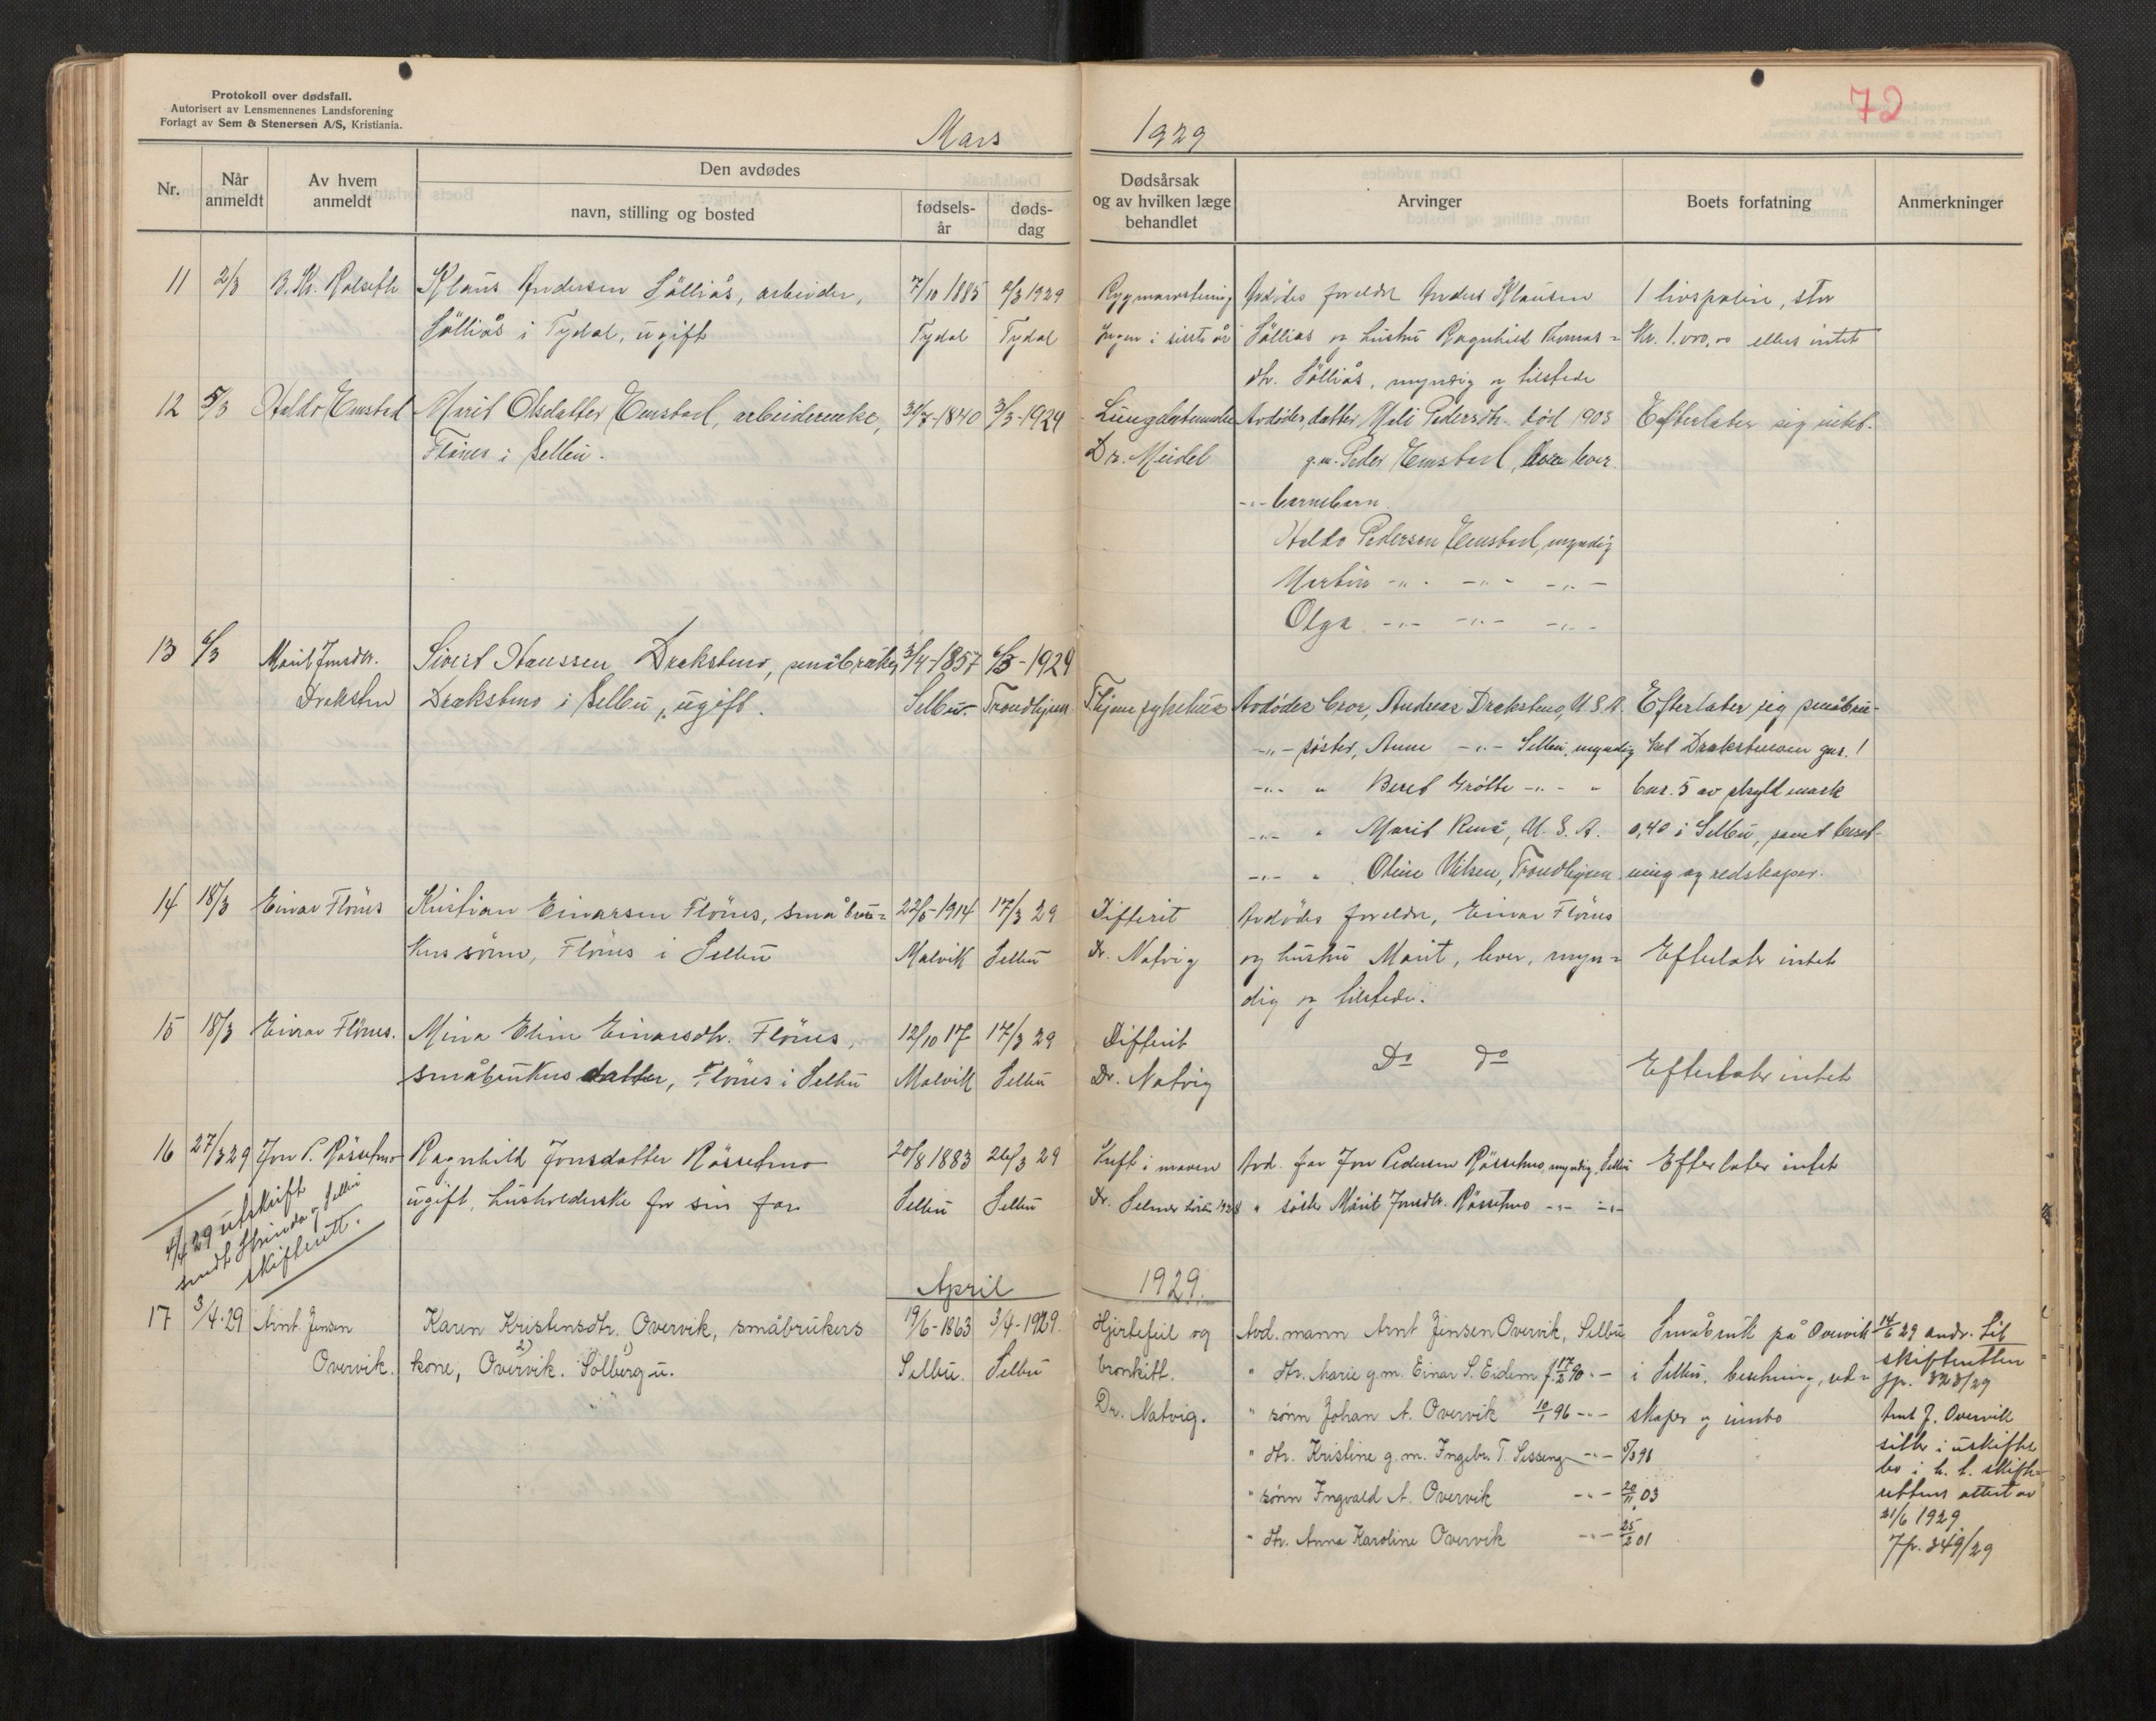 Protokoll over dødsfall.
Autorisert av Lensmennenes Landsforening
Forlagt av Sem & Stenersen A/S, Kristiania.
Mars 1929
72
Nr.
Når anmeldt
Av hvem anmeldt
Den avdødes
navn, stilling og bosted
fødsels-år
døds-dag
Dødsårsak og av hvilken læge behandlet
Arvinger
Boets forfatning
Anmerkninger
11 2/3 B. Kr. Rolseth Klaus Andersen Sølliås, arbeider, 7/10 1885 2/3 1929 Avdødes foreldre Anders Klausen 1 livspolise, stor
Sølliås i Tydal, ugift Tydal Tydal Ingen i siste år Sølliås og hustru Ragnhild Thomas- Kr. 1.000,00 ellers intet
dtr. Sølliås, myndig og tilstede
12 5/3 Haldo Emstad Marit Olsdatter Emstad, arbeiderenke, 31/7-1840 3/3-1929 Lungebetennelse Avdødes datter Mali Pedersdtr. død 1903 Efterlater sig intet.
Flønes i Selbu. Dr. Meidel g.m. Peder Emstad, lever.
-"- barnebarn
Haldo Pedersen Emstad, myndig
Martin -"- -"- -"-
Olga -"- -"- -"-
13 6/3 Marit Jonsdtr. Sivert Hanssen Drakstmo, småbruker 3/4-1857 6/3-1929
Drakstmo i Selbu, ugift. Selbu. Trondhjem Thjems sykehus Avdødes bror, Andreas Drakstmo, U.S.A. Efterlater sig småbru-
-"- søster, Anne -"- Selbu, myndig ket Drakstmoen gnr. 1
-"- " Beret Grøtte -"- " bnr. 5 av skyld mark
-"- " Marit U.S.A. 0,40 i Selbu, samt beset-
-"- " Oline Nilsen, Trondhjem ning og redskaper.
14 18/3 Einar Flönes Kristian Einarsen Flönes, småbru- 22/5-1914 17/3 29 Difterit Avdødes foreldre, Einar Flönes
kers sønn, Flönes i Selbu Malvik Selbu Dr. Natvig og hustru Marit, lever, myn- Efterlater intet
dig og tilstede.
15 18/3 Einar Flönes. Mina Eline Einarsdtr. Flönes, 12/10 17 17/3 29 Difterit Do do
småbrukers datter, Flönes i Selbu Malvik Selbu Dr. Natvig Efterlater intet
16 27/3 29 Jon P. Røssetmo Ragnhild Jonsdatter Røssetmo 20/8 1883 26/3 29 Kreft i maven Avd. far Jon Pedersen Røssetmo, myndig, Selbu Efterlater intet
ugift, husholderske for sin far Selbu Selbu Dr. Selmer 1928 " søster Marit Jonsdtr. Røssetmo -"- -"-
4/4 29 utskrift
sendt Strinda og Selbu
skifterett.
April 1929.
17 3/4-29 Arnt Jensen Karen Kristensdtr. Overvik, småbrukers 19/6-1863 3/4-1929. Hjertefeil og Avd. mann Arnt Jensen Overvik, Selbu Småbruk på Overvik 14/6 29 andr. til
Overvik. kone, Overvik. Solberg u. Selbu. Selbu bronkitt. " dtr. Marie g.m. Einar S. Eidem f. 17/2 90 -"- i Selbu, besetning, red- skifteretten
2) 1)
jp. 323/29
Dr. Natvig. " sønn Johan A. Overvik 10/1 96 -"- skaper og innbo Arnt J. Overvik
" dtr. Kristine g.m. Ingebr. T. Sesseng -"- 5/3 98 sitter i uskiftet
" sønn Ingvald A. Overvik -"- 20/11 03 bo i h. t. skifte-
rettens attest av
" dtr. Anna Karoline Overvik -"- 25/2 01 21/6 1929
Jp. 349/29